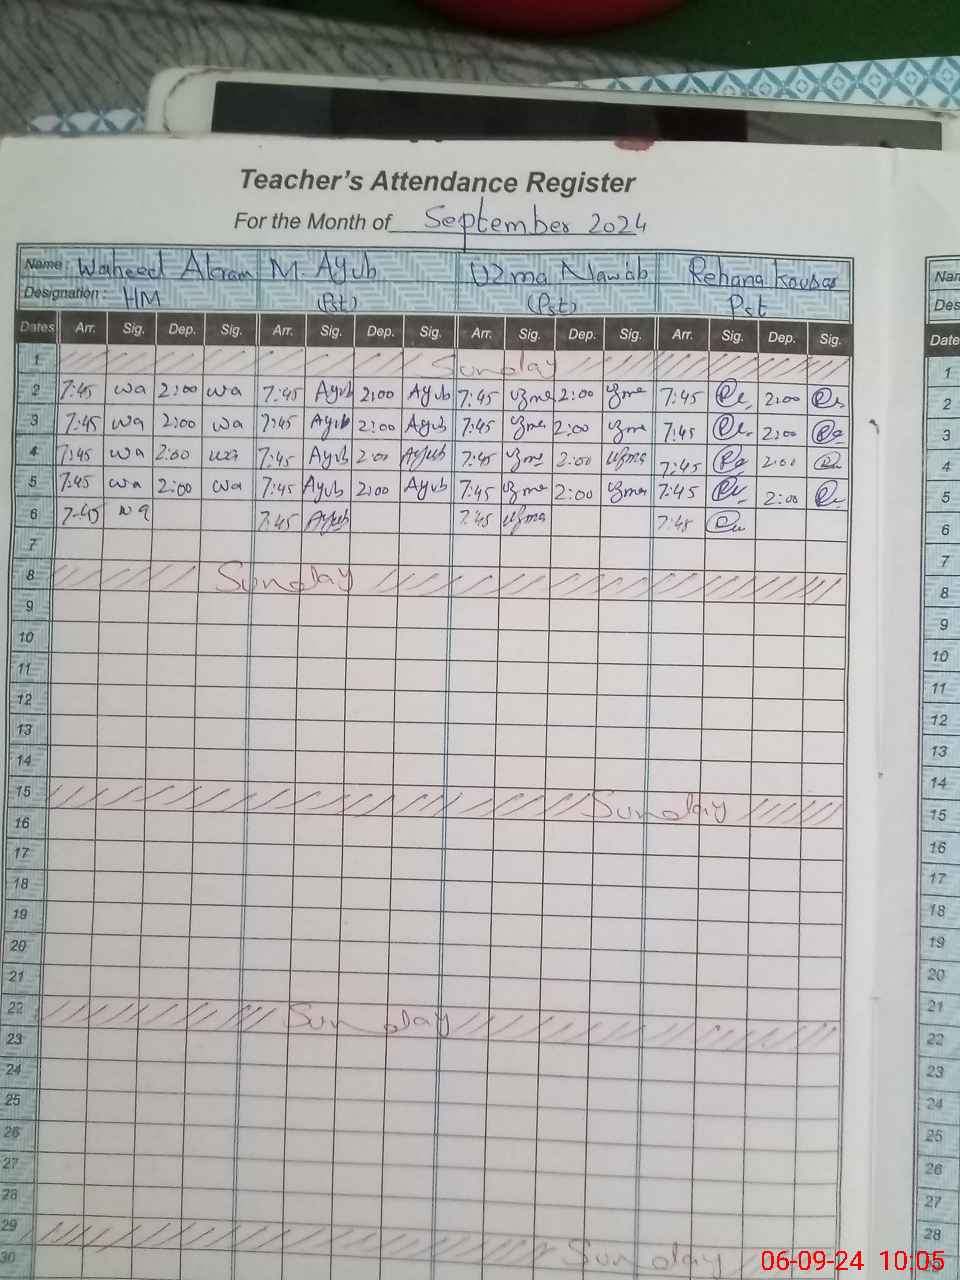 Teacher's Attendance Register
For the Month of September 2024
Name: Waheed Akram M. Ayub Uzma Nawab Rehana Kousar
Designation: HM (Pst) (Pst) Pst
Dates Arr. Sig. Dep. Sig. Arr. Sig. Dep. Sig. Arr. Sig. Dep. Sig. Arr. Sig. Dep. Sig.
1 Sunday
2 7:45 wa 2:00 wa 7:45 Ayub 2:00 Ayub 7:45 uzma 2:00 uzma 7:45 2:00
3 7:45 wa 2:00 wa 7:45 Ayub 2:00 Ayub 7:45 uzma 2:00 uzma 7:45 2:00
4 7:45 wa 2:00 wa 7:45 Ayub 2:00 Ayub 7:45 uzma 2:00 uzma 7:45 2:00
5 7:45 wa 2:00 wa 7:45 Ayub 2:00 Ayub 7:45 uzma 2:00 uzma 7:45 2:00
6 7:45 wa 7:45 Ayub 7:45 uzma 7:45
7
8 Sunday
9
10
11
12
13
14
15 Sunday
16
17
18
19
20
21
22 Sunday
23
24
25
26
27
28
29 Sunday
30
Nam
Des
Date
1
2
3
4
5
6
7
8
9
10
11
12
13
14
15
16
17
18
19
20
21
22
23
24
25
26
27
28
06-09-24 10:05